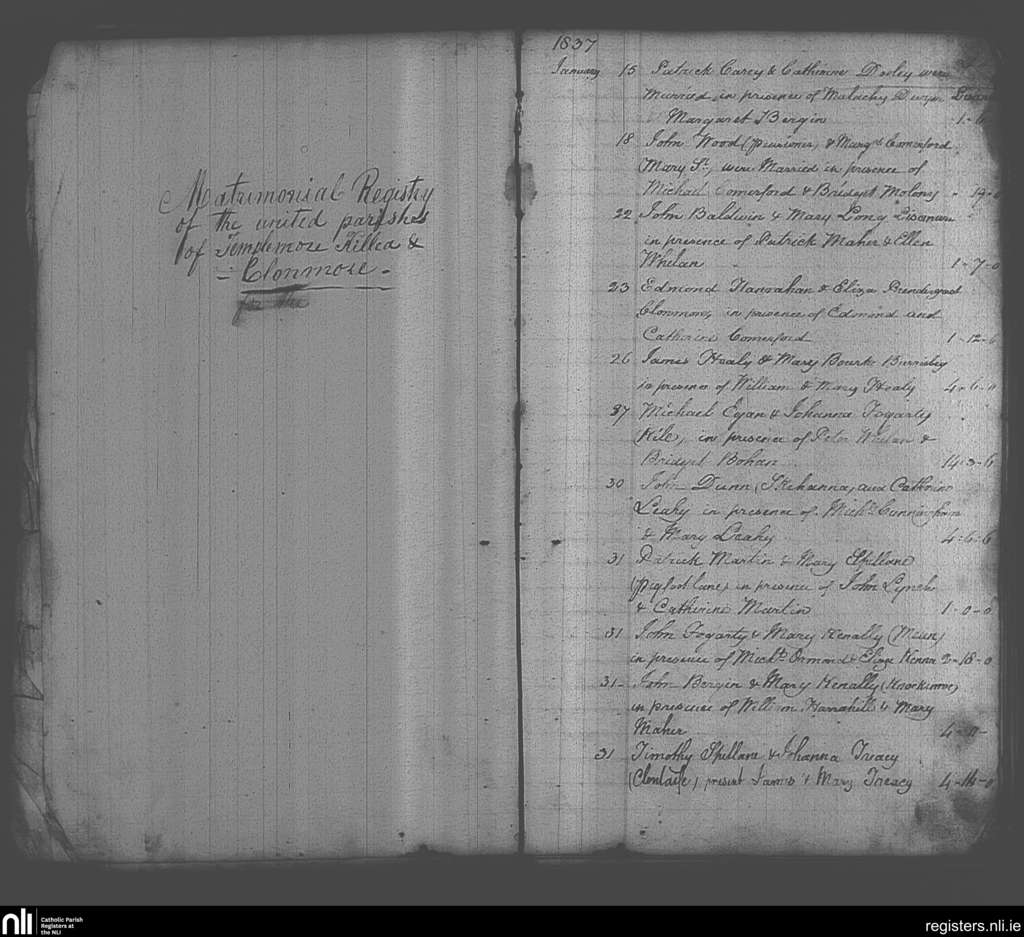 Matrimonial Registry
of the united parishes
of Templemore Killea &
Clonmore -
for the
1837
January 15 Patrick Carey & Catherine Dooley were
Married in presence of Malachy Dwyer
Margaret Bergin 1-
18 John Wood (pensioner) & Margt Comerford
(Mary St) were Married in presence of
Michael Comerford & Bridget Molony
22 John Baldwin & Mary Long
in presence of Patrick Maher & Ellen
Whelan 1-7-0
23 Edmond Hanrahan & Eliza Prendergast
Clonmore, in presence of Edmond and
Catherine Comerford 1-12-6
26 James Healy & Mary Bourke
in presence of William & Mary Healy 4-6-0
27 Michael Egan & Johanna Fogarty
(Kile) in presence of Peter Whelan &
Bridget Bohan 14-3-6
30 John Dunn, and Catherine
Leahy in presence of Michl
& Mary Leahy 4-6-6
31 Patrick Martin & Mary Spillane
(pigfoot lane) in presence of John Lynch
& Catherine Martin 1-0-0
31 John Fogarty & Mary Kenally
in presence of Michl Ormond & Eliza Kenna 2-18-0
31- John Bergin & Mary Kenally
in presence of William & Mary
Maher
31 Timothy Spillane & Johanna Treacy
present James & Mary Treacy 4-14-0
nli
Catholic Parish
Registers at
the NLI
registers.nli.ie